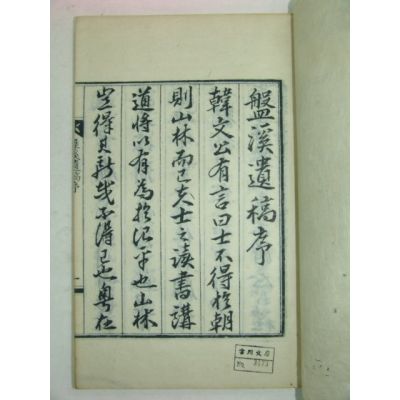 盤溪遺稿序
韓文公有言曰士不得於朝
則山林而已夫士之讀書講
道將以有為於治平也山林
豈得其所哉不得已也粤在
盤溪遺稿序